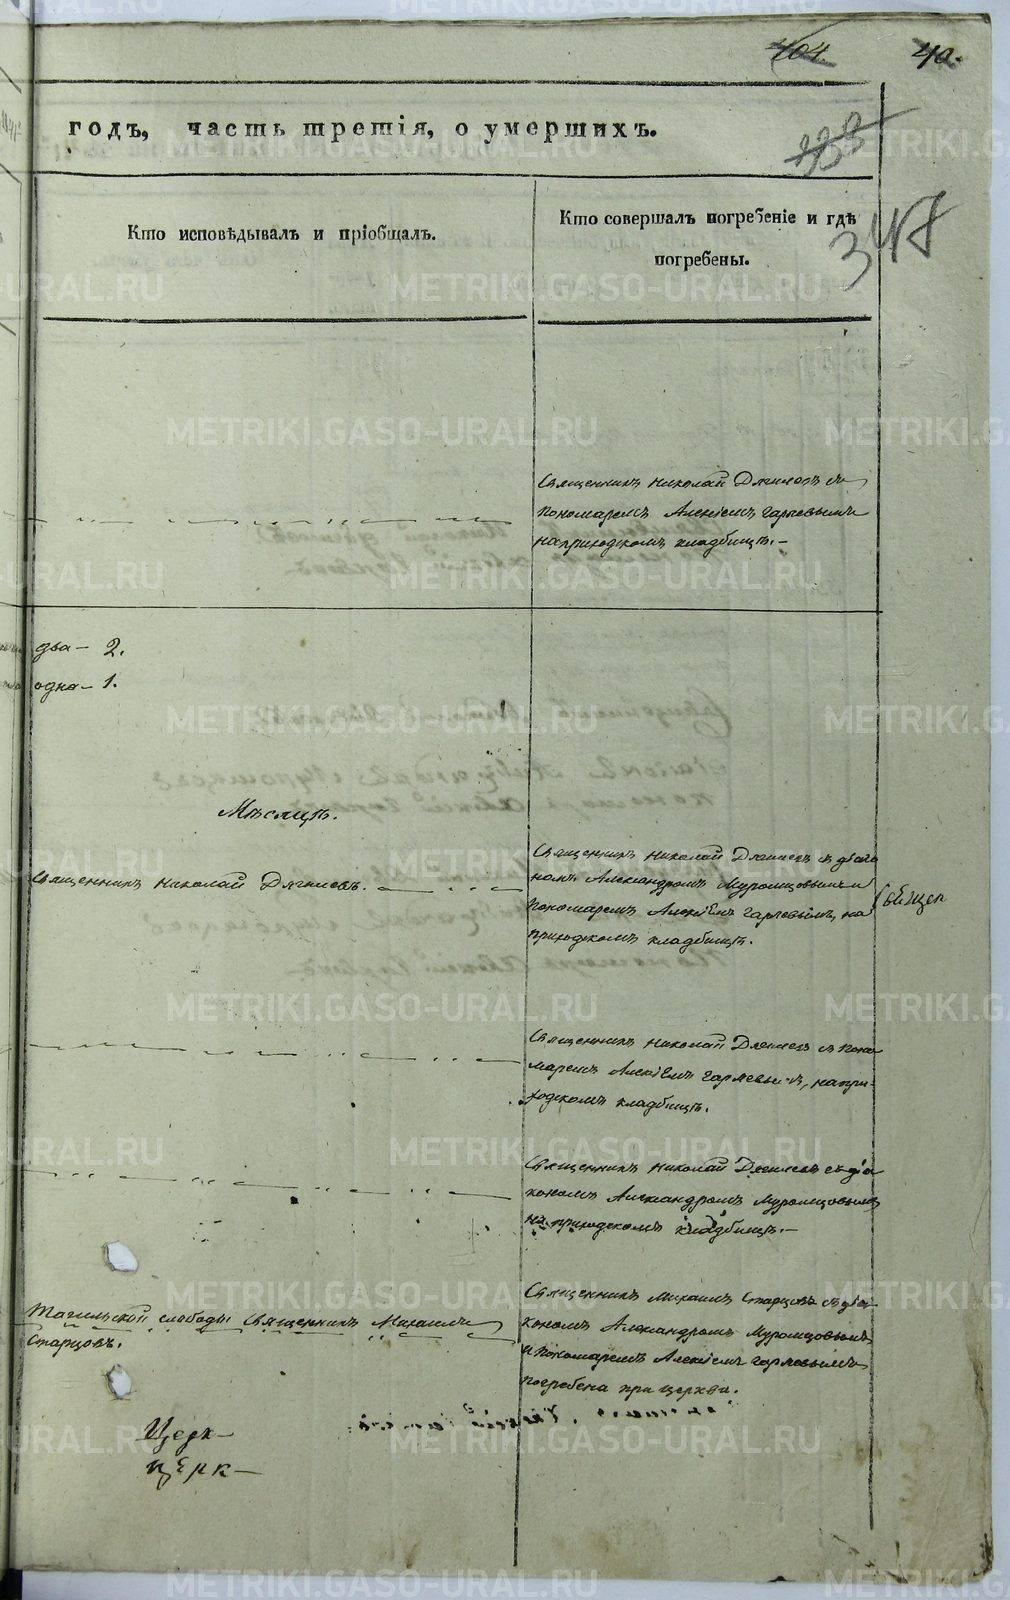 404. 40.
годъ, часть третія, о умершихъ.
333
347
Кто исповѣдывалъ и пріобщалъ.
Кто совершалъ погребеніе и гдѣ
погребены.
Священникъ Николай Дягилевъ съ
пономаремъ Алексіемъ Гаряевымъ
на приходскомъ кладбищѣ.—
два — 2.
одна — 1.
Мѣсяцъ.
Священникъ Николай Дягилевъ.
Священникъ Николай Дягилевъ съ діако
номъ Александромъ Муромцовымъ и
пономаремъ Алексіемъ Гаряевымъ, на
приходскомъ кладбищѣ.
Священникъ Николай Дягилевъ съ поно
маремъ Алексіемъ Гаряевымъ, на при-
ходскомъ кладбищѣ.
Священникъ Николай Дягилевъ съ діа
кономъ Александромъ Муромцовымъ
на приходскомъ кладбищѣ.—
Тагильской слободы Священникъ Михаилъ
Старцовъ.
Священникъ Михаилъ Старцовъ съ діа
кономъ Александромъ Муромцовымъ
и пономаремъ Алексіемъ Гаряевымъ
погребена при церкви.
Церк—
церк—
METRIKI.GASO-URAL.RU